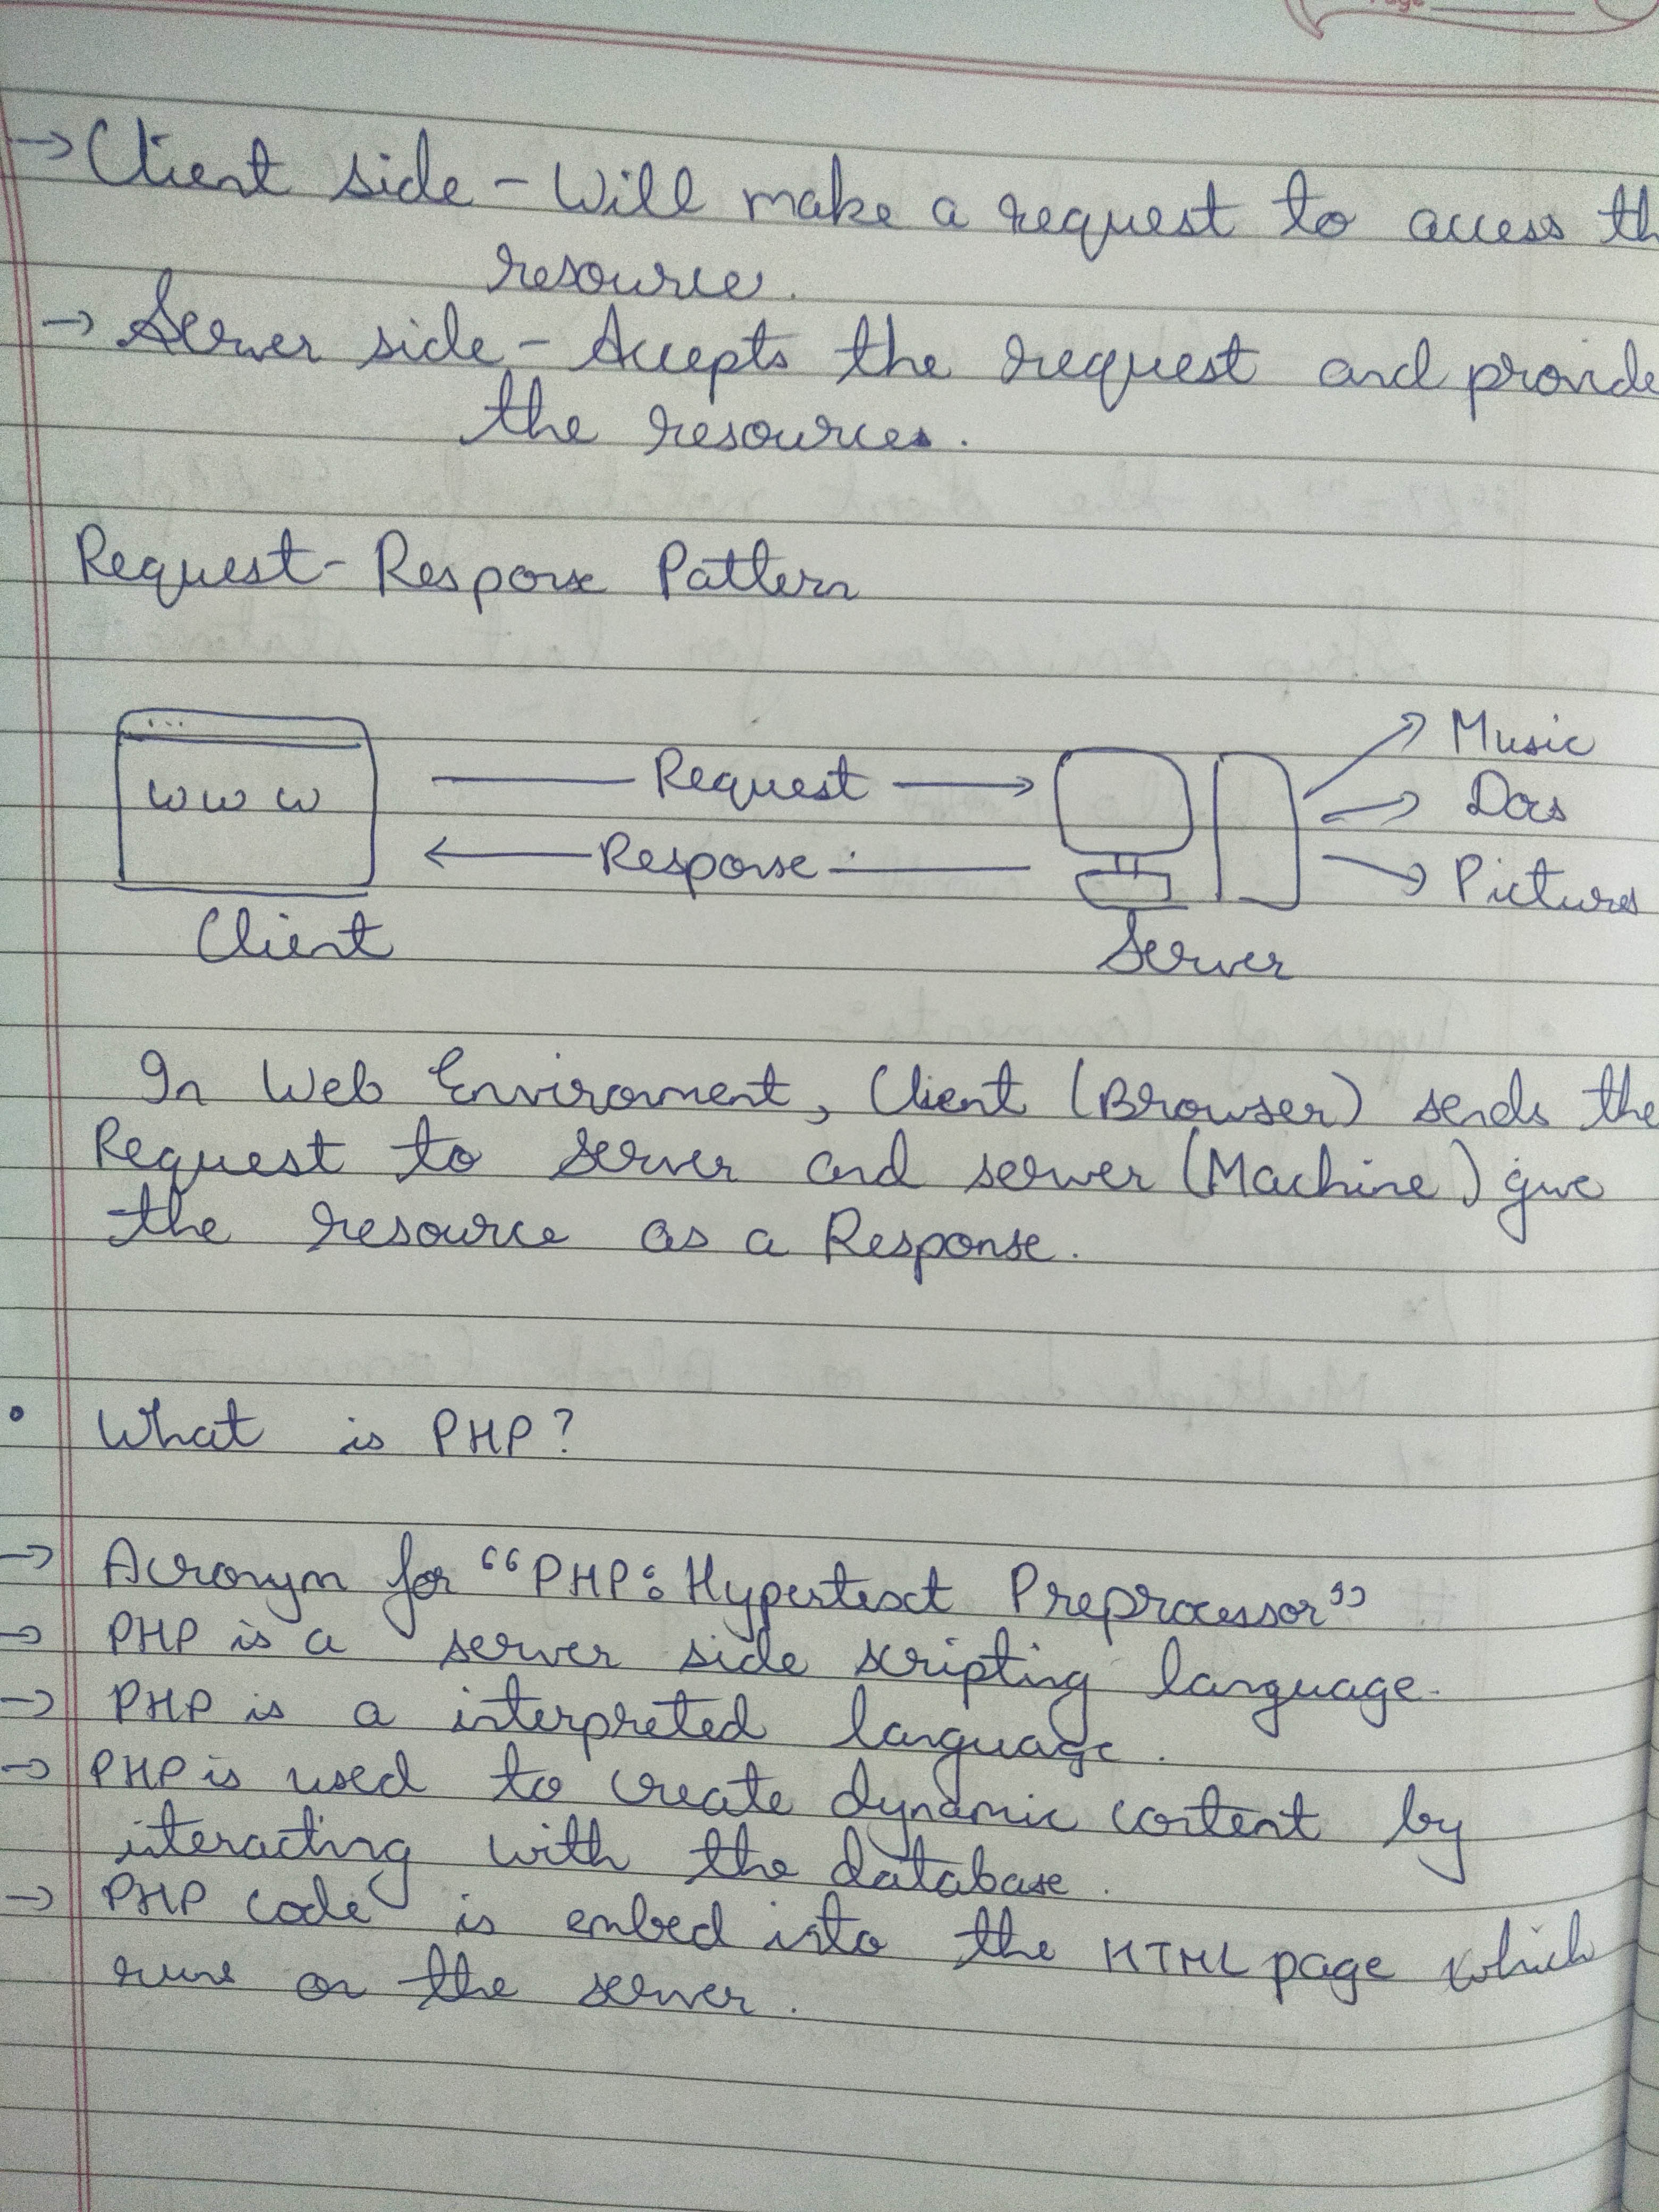 Page
→ Client side - Will make a request to access th
resource.
→ Server side - Accepts the request and provide
the resources.
Request - Response Pattern
www
Request
Response
Client
Server
Music
Docs
Pictures
In Web Enviroment, Client (Browser) sends the
Request to server and server (Machine) give
the resource as a Response.
• What is PHP?
→ Acronym for “PHP: Hypertext Preprocessor”
→ PHP is a server side scripting language.
→ PHP is a interpreted language.
→ PHP is used to create dynamic content by
interacting with the database.
→ PHP code is embed into the HTML page which
runs on the server.